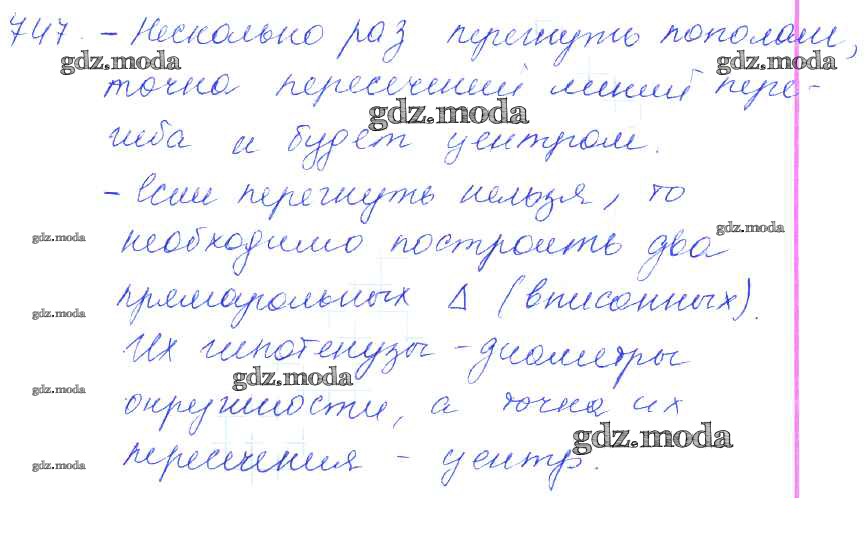 747. – Несколько раз перегнуть пополам,
gdz.moda gdz.moda
точка пересечений линий пере-
gdz.moda
гиба и будет центром.
– Если перегнуть нельзя, то
gdz.moda
необходимо построить два
gdz.moda
прямоугольных Δ (вписанных).
gdz.moda
Их гипотенузы – диаметры
gdz.moda
gdz.moda
окружности, а точка их
gdz.moda
пересечения – центр.
gdz.moda